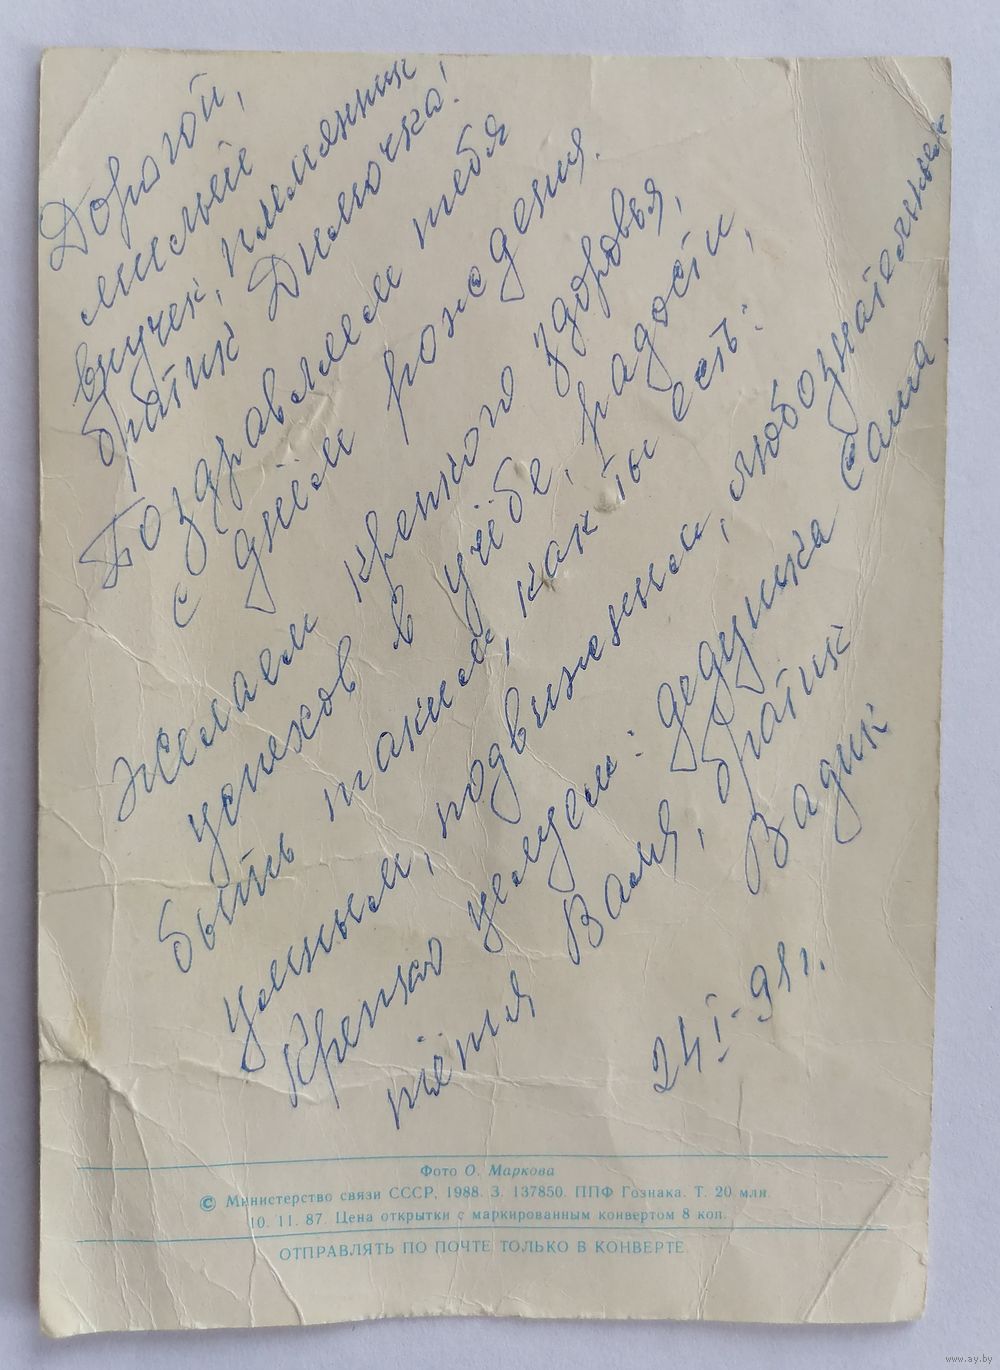 Дорогой,
милый
внучек, племянник,
братик Димочка!
Поздравляем тебя
с днём рождения.
Желаем крепкого здоровья,
успехов в учёбе, радости,
быть таким, как ты есть:
умным, подвижным, любознательным
Крепко целуем: дедушка Саша
тётя Валя, братик
Вадик
24 I-91г.
Фото О. Маркова
© Министерство связи СССР, 1988. З. 137850. ППФ Гознака. Т. 20 млн.
10. 11. 87. Цена открытки с маркированным конвертом 8 коп.
ОТПРАВЛЯТЬ ПО ПОЧТЕ ТОЛЬКО В КОНВЕРТЕ
www.ay.by